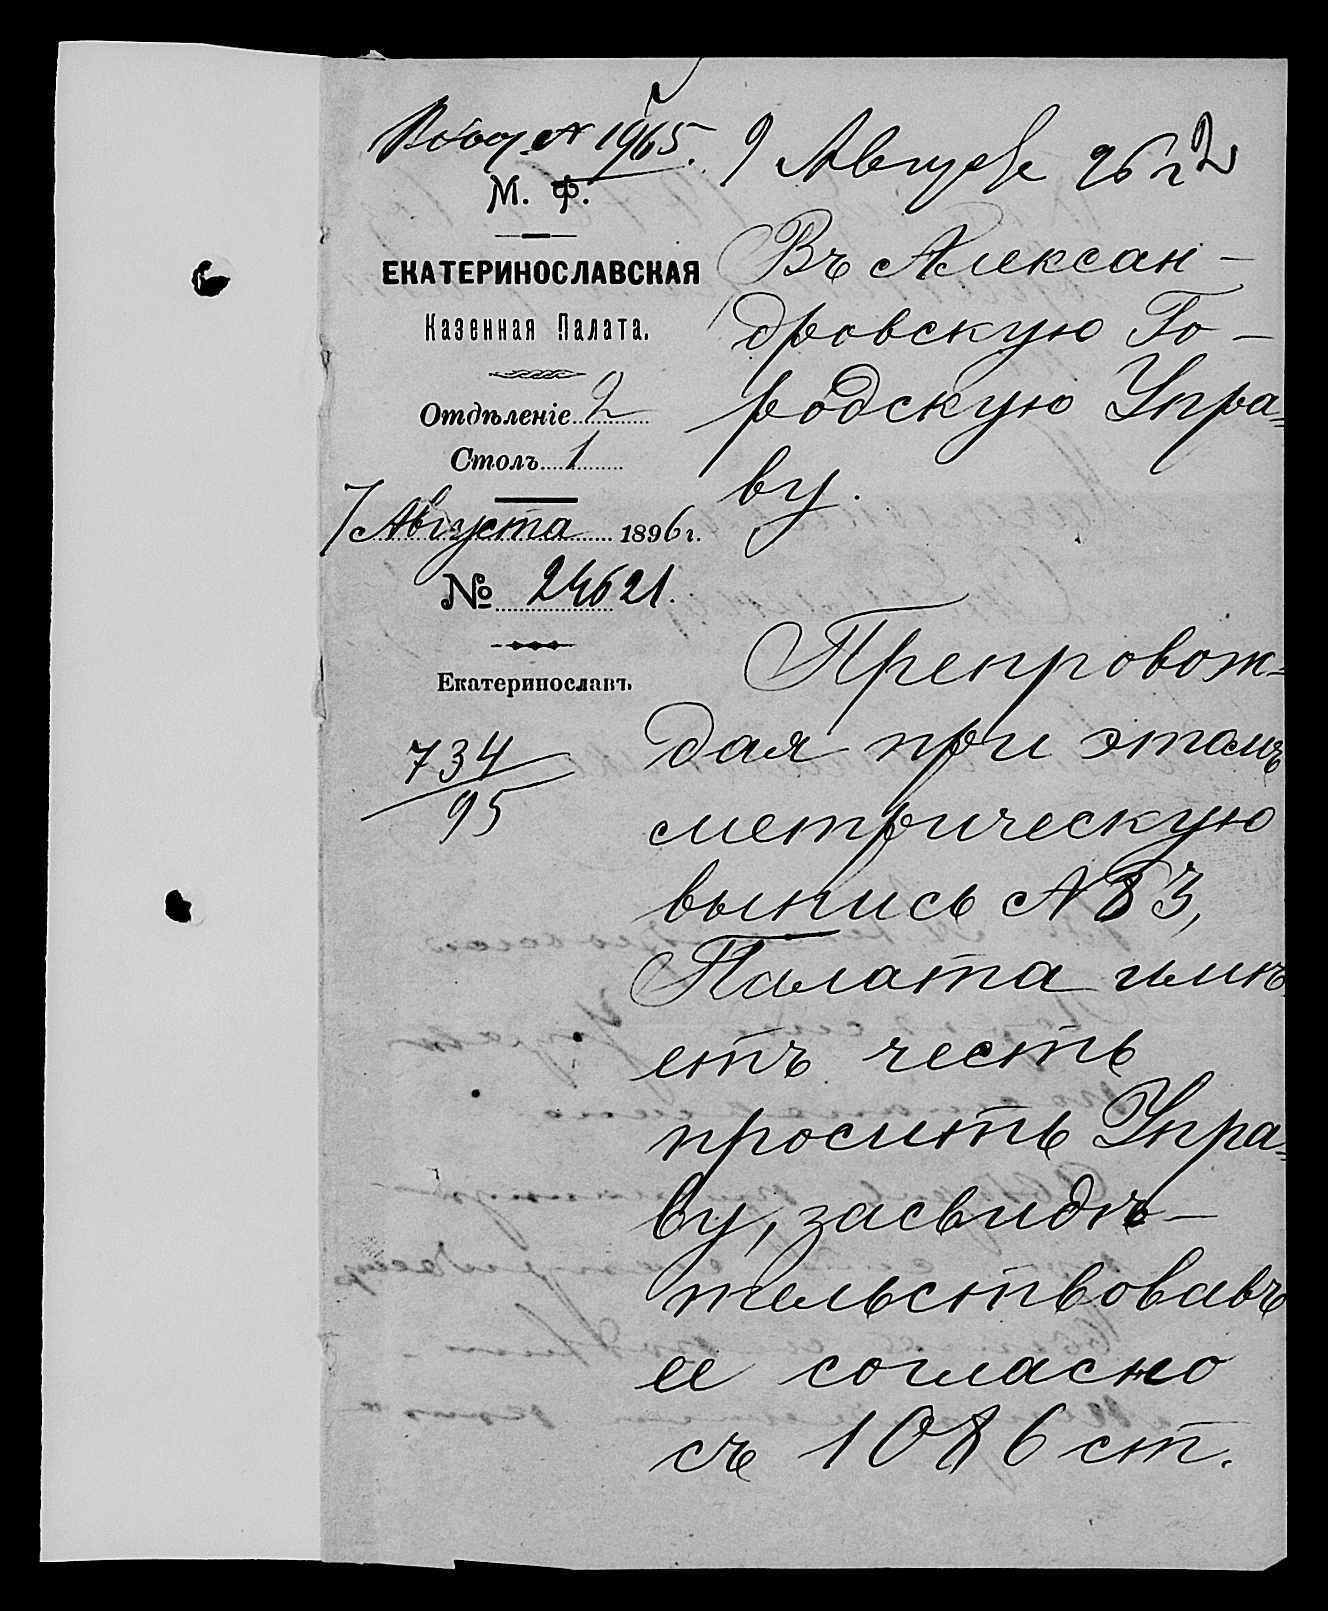 № 1965. 9 Августа 96 г.
М. Ф.
ЕКАТЕРИНОСЛАВСКАЯ
Казенная Палата.
Отдѣленіе 2
Столъ 1
7 Августа 1896 г.
№ 24621.
Екатеринославъ.
734
95
Въ Алексан-
дровскую Го-
родскую Упра-
ву.
Препровож-
дая при этомъ
метрическую
выпись № 83,
Палата имѣ-
етъ честь
просить Упра-
ву, засвидѣ-
тельствовавъ
ее согласно
съ 1086 ст.